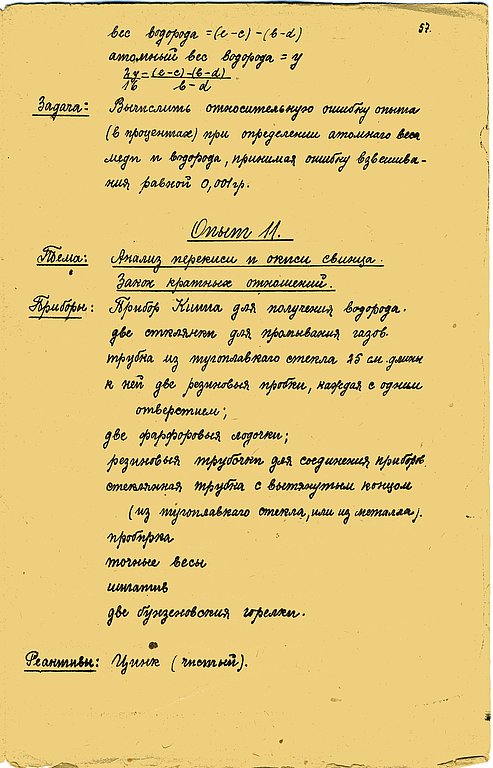 57.
вес водорода = (е-с)-(в-d)
атомный вес водорода = y
2y/16 = (е-с)-(в-d)/в-d
Задача: Вычислить относительную ошибку опыта
(в процентах) при определении атомнаго веса
меди и водорода, принимая ошибку взвешива-
ния равной 0,001гр.
Опыт 11.
Тема: Анализ перекиси и окиси свинца.
Закон кратных отношений.
Приборы: Прибор Киппа для получения водорода.
две стклянки для промывания газов.
трубка из тугоплавкаго стекла 25 см. длины
к ней две резиновыя пробки, каждая с одним
отверстием;
две фарфоровыя лодочки;
резиновыя трубочки для соединения приборов
стеклянная трубка с вытянутым концом
(из тугоплавкаго стекла, или из металла).
пробирка
точные весы
штатив
две бунзеновския горелки.
Реактивы: Цинк (чистый).